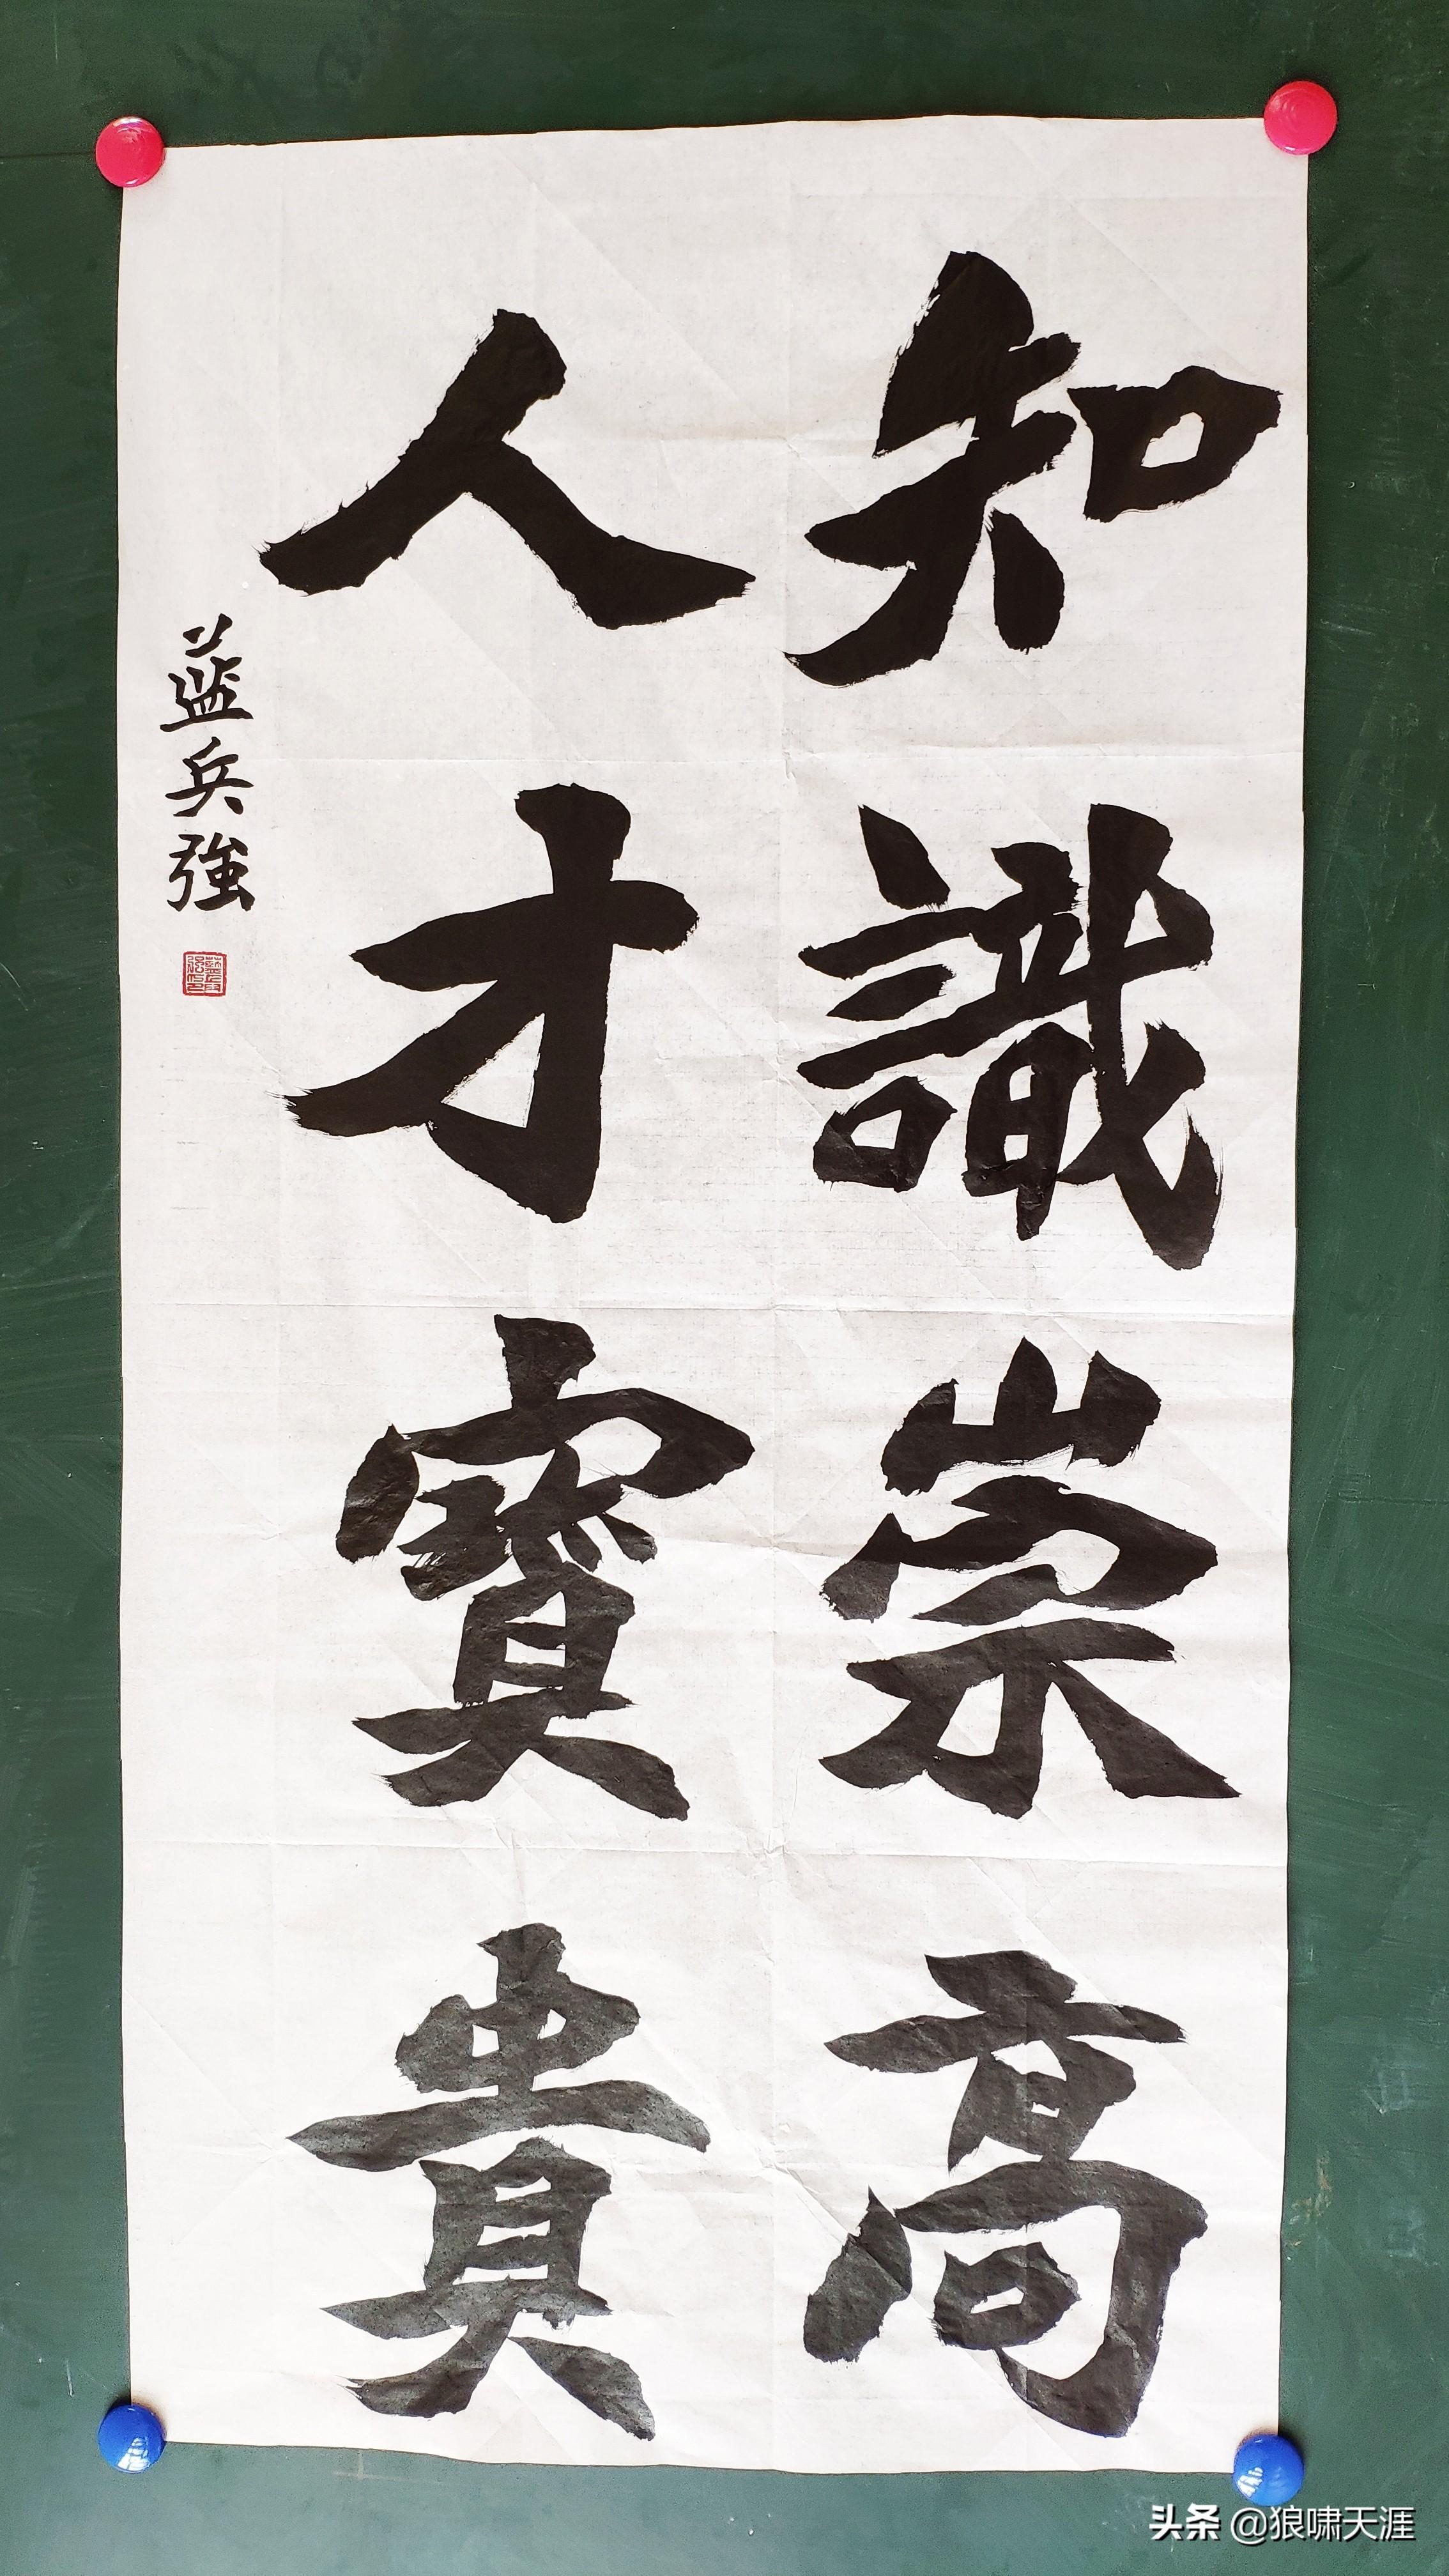 知識崇高
人才寶貴
藍兵強
头条 @狼啸天涯